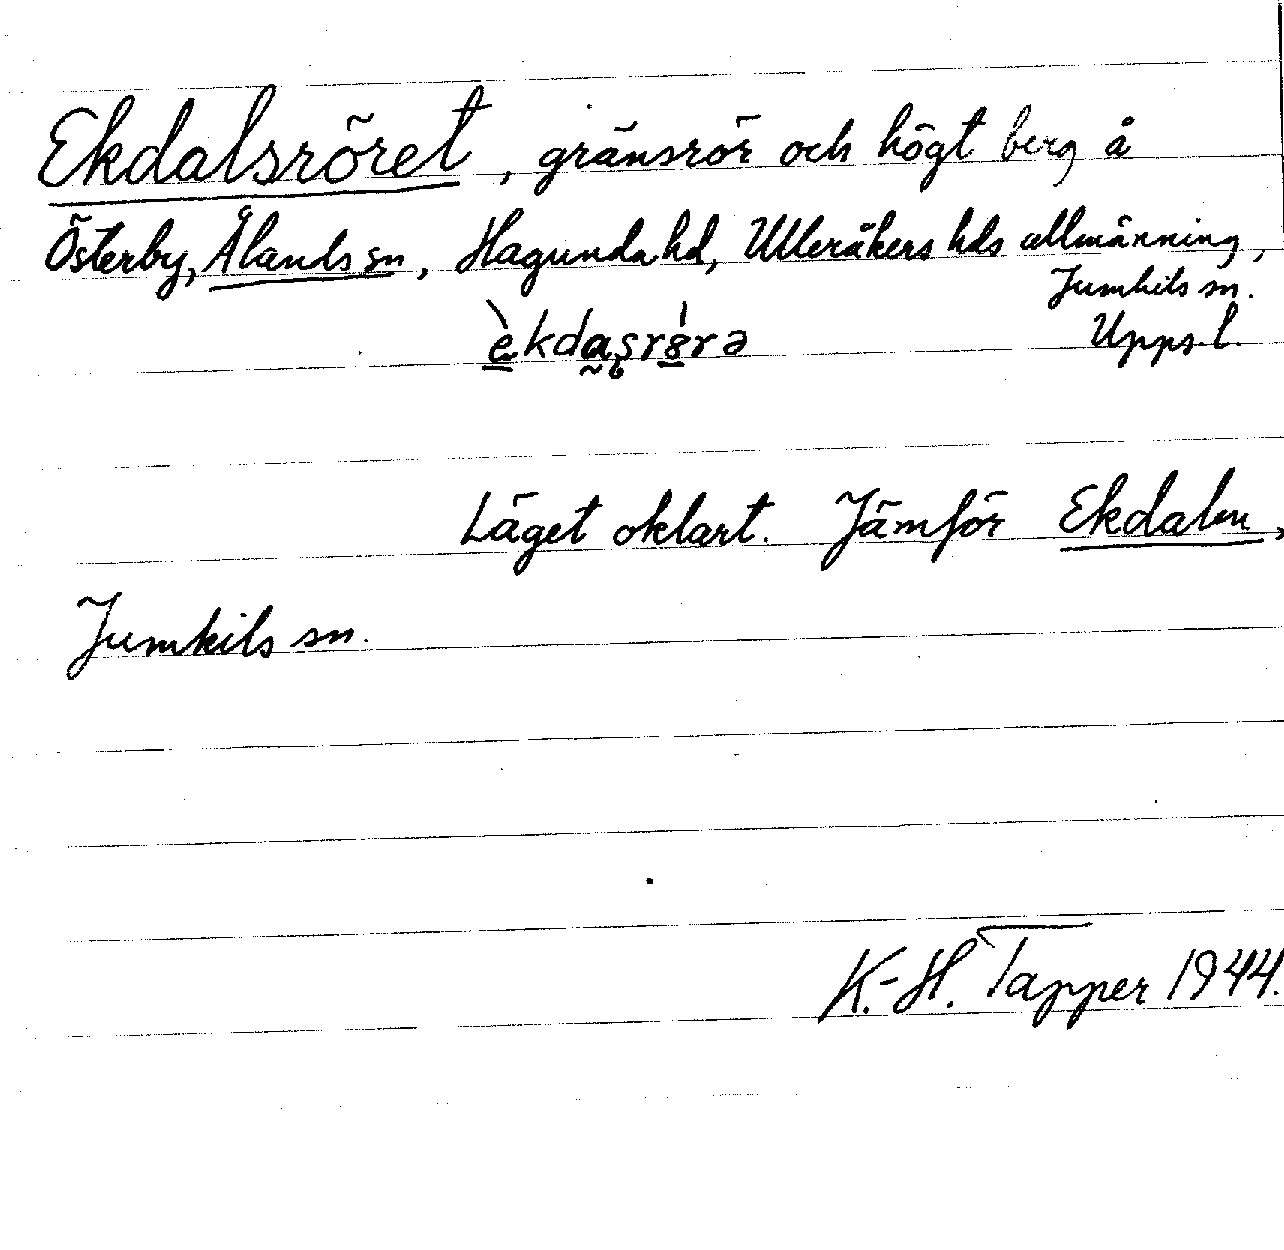 Ekdalsröret, gränsrör och högt berg å
Österby, Ålands sn, Hagunda hd, Ulleråkers hds allmänning,
Jumkils sn.
èkdasr8́rə Upps. l.
Läget oklart. Jämför Ekdalen,
Jumkils sn.
K.-H. Tapper 1944.